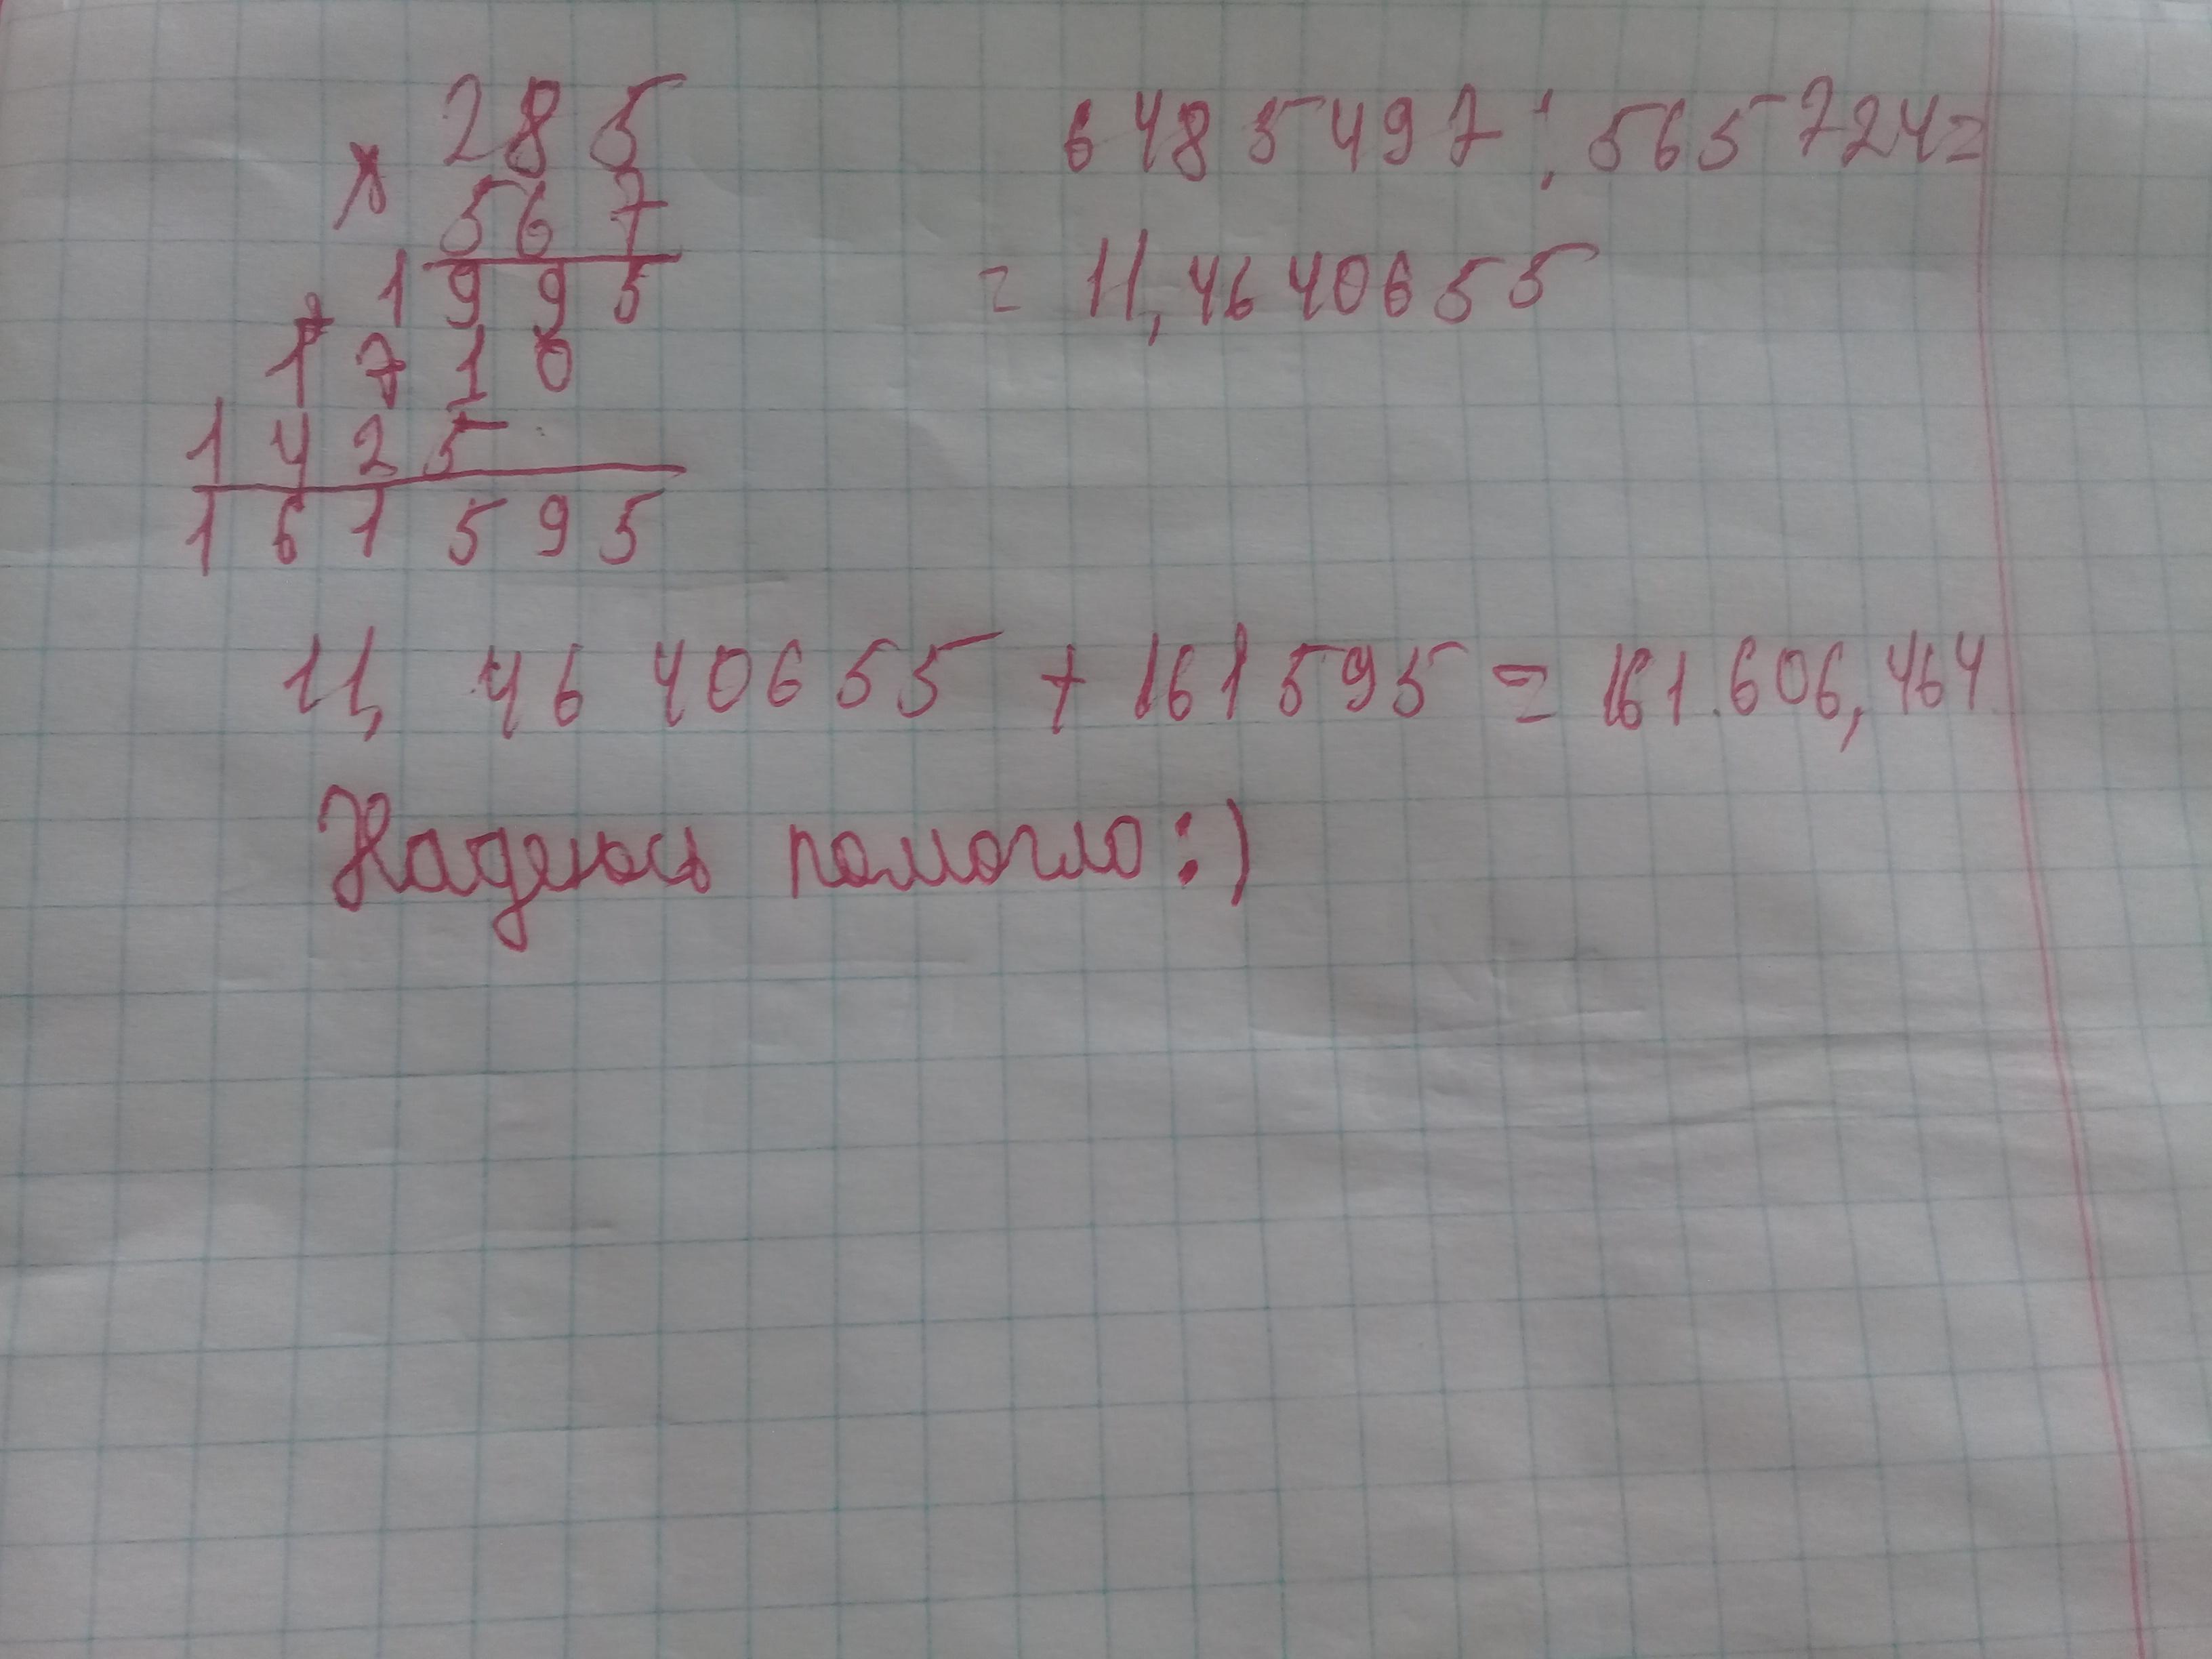 285
× 567
1995
+ 1710
1425
161595
6485497 : 565724=
= 11,4640655
11,4640655 + 161595 = 161.606,464
Надеюсь помогло :)